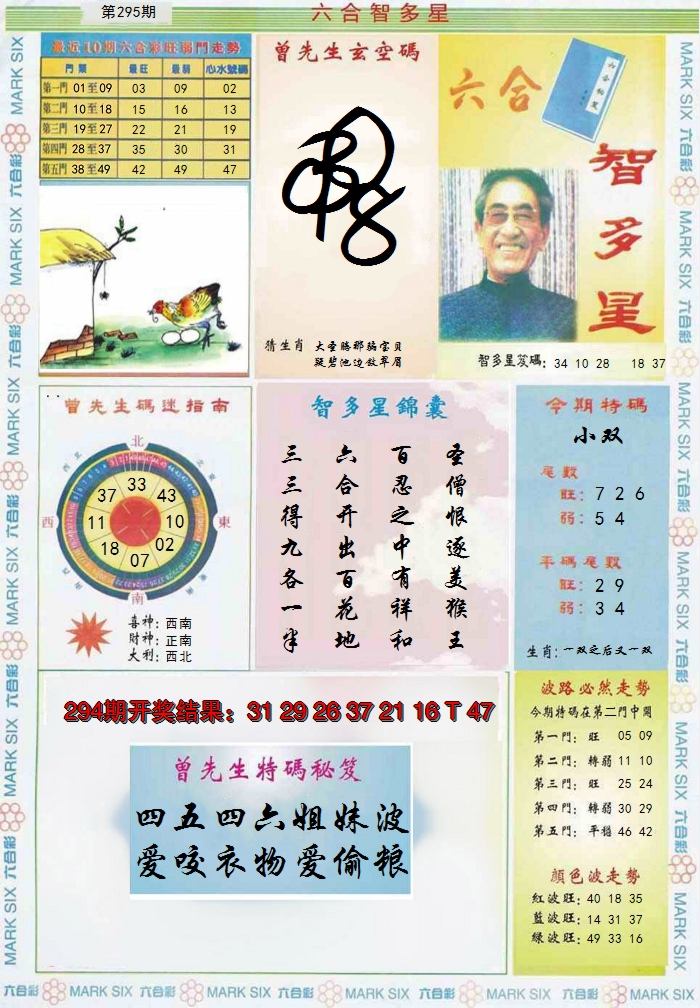 第295期
六合智多星
最近10期六合彩旺弱門走勢
門票 最旺 最弱 心水號碼
第一門 01至09 03 09 02
第二門 10至18 15 16 13
第三門 19至27 22 21 19
第四門 28至37 35 30 31
第五門 38至49 42 49 47
曾先生玄空碼
猜生肖 大圣勝那骗宝贝
凝碧池边敛翠眉
六合
智多星
智多星笈碼: 34 10 28 18 37
曾先生碼迷指南
北
西
東
南
37 33 43
11 10
18 07 02
喜神: 西南
財神: 正南
大利: 西北
智多星錦囊
圣僧恨逐美猴王
百忍之中有祥和
六合开出百花地
三三得九各一半
今期特碼
小双
尾數
旺: 7 2 6
弱: 5 4
平碼尾數
旺: 2 9
弱: 3 4
生肖: 一双之后又一双
294期开奖结果: 31 29 26 37 21 16 T 47
曾先生特碼秘笈
四五四六姐妹波
爱咬衣物爱偷粮
波路必然走勢
今期特碼在第二門中開
第一門: 旺 05 09
第二門: 轉弱 11 10
第三門: 旺 25 24
第四門: 轉弱 30 29
第五門: 平穩 46 42
顏色波走勢
紅波旺: 40 18 35
藍波旺: 14 31 37
綠波旺: 49 33 16
六合彩 MARK SIX 六合彩 MARK SIX 六合彩 MARK SIX 六合彩 MARK SIX 六合彩 MARK SIX